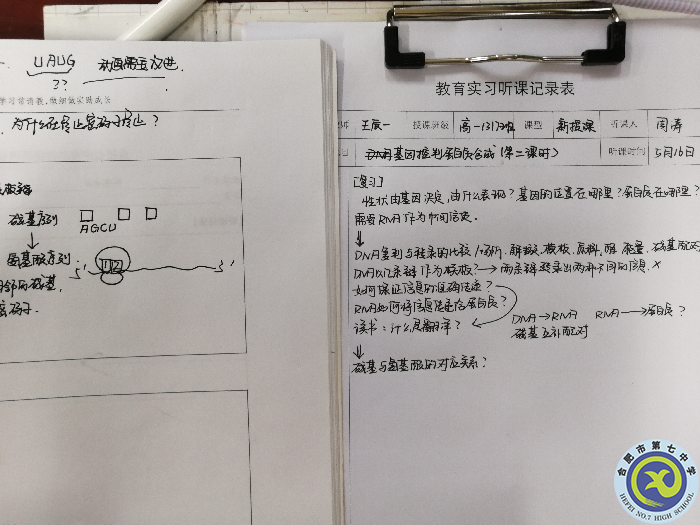 UAUG 动画需要改进.
3?
为什么在停止密码子停止?
碱基序列
AGCU
氨基酸序列
5' 3'
教育实习听课记录表
授课班级 高一(31)班 课型 新授课 听课人 周涛
基因控制蛋白质合成(第二课时) 听课时间 5月16日
[复习]
性状由基因决定,由什么表现?基因的位置在哪里?蛋白质在哪里?
需要RNA作为中间信使.
DNA复制与转录的比较/场所.解旋.模板.原料.酶.能量.碱基配对
DNA以几条链作为模板?→两条链转录出两种不同的信息 ×
如何保证信息的准确传递?
RNA如何将信息传递给蛋白质?
DNA→RNA RNA→蛋白质?
读书:什么是翻译?
碱基互补配对
碱基与氨基酸的对应关系?
合肥市第七中学
HEFEI NO.7 HIGH SCHOOL